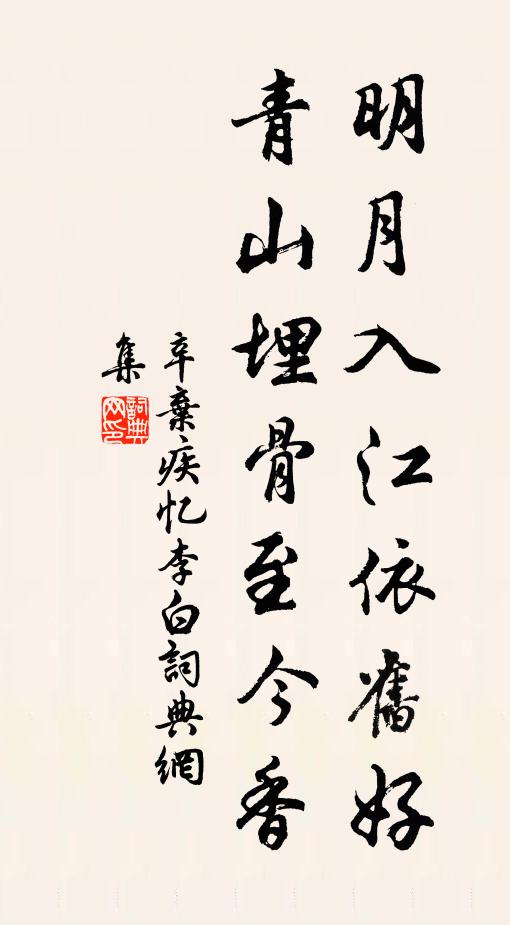 明月入江依舊好
青山埋骨至今香
辛棄疾忆李白詞典網
集
詞典網印